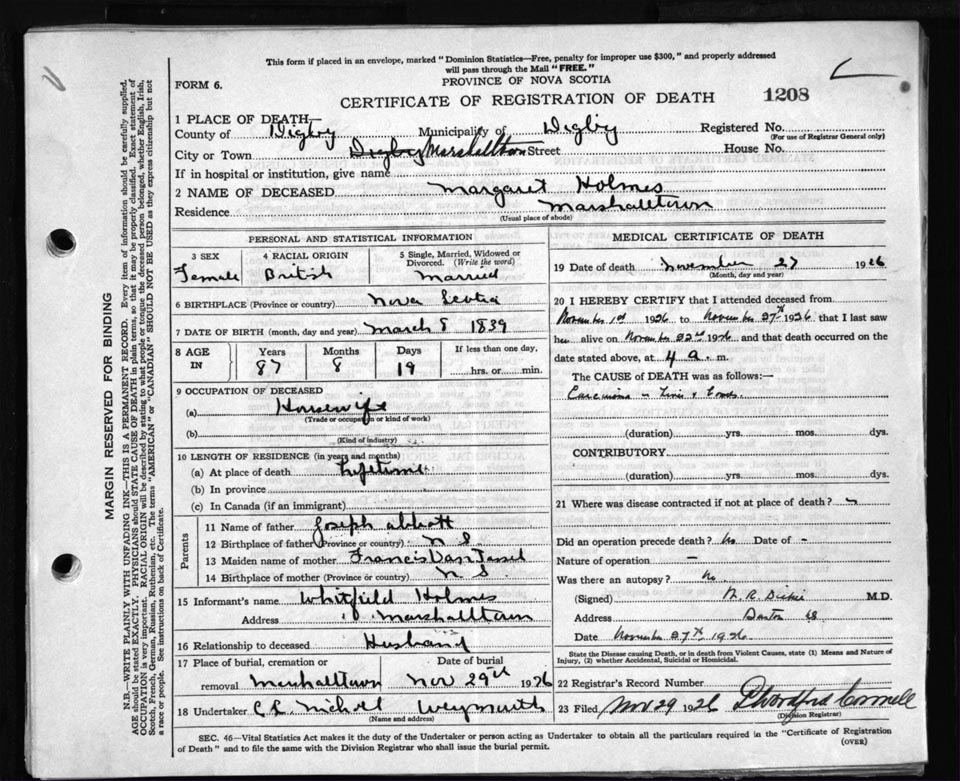 This form if placed in an envelope, marked "Dominion Statistics—Free, penalty for improper use $300," and properly addressed
will pass through the Mail "FREE."
FORM 6.
PROVINCE OF NOVA SCOTIA
CERTIFICATE OF REGISTRATION OF DEATH 1208
1 PLACE OF DEATH—
County of Digby Municipality of Digby Registered No.
(For use of Registrar General only)
City or Town Digby Marshalltown Street House No.
If in hospital or institution, give name
2 NAME OF DECEASED Margaret Holmes
Residence Marshalltown
(Usual place of abode)
PERSONAL AND STATISTICAL INFORMATION
3 SEX 4 RACIAL ORIGIN 5 Single, Married, Widowed or
Divorced. (Write the word)
Female British Married
6 BIRTHPLACE (Province or country) Nova Scotia
7 DATE OF BIRTH (month, day and year) March 8 1839
8 AGE IN Years Months Days If less than one day,
87 8 19 hrs. or min.
9 OCCUPATION OF DECEASED
(a) Housewife
(Trade or occupation or kind of work)
(b)
(Kind of industry)
10 LENGTH OF RESIDENCE (in years and months)
(a) At place of death Lifetime
(b) In province
(c) In Canada (if an immigrant)
Parents
11 Name of father Joseph Abbott
12 Birthplace of father (Province or country) N S
13 Maiden name of mother Francis Van Tassel
14 Birthplace of mother (Province or country) N S.
15 Informant's name Whitfield Holmes
Address Marshalltown
16 Relationship to deceased Husband
17 Place of burial, cremation or Date of burial
removal Marshalltown Nov 29th 1926
18 Undertaker Weymouth
(Name and address)
MEDICAL CERTIFICATE OF DEATH
19 Date of death November 27 1926
(Month, day and year)
20 I HEREBY CERTIFY that I attended deceased from
November 1st 1926 to November 27th 1926 that I last saw
her alive on November 22nd 1926 and that death occurred on the
date stated above, at 4 a. m.
The CAUSE of DEATH was as follows:—
Carcinoma
(duration) yrs. mos. dys.
CONTRIBUTORY
(duration) yrs. mos. dys.
21 Where was disease contracted if not at place of death? -
Did an operation precede death? No Date of -
Nature of operation —
Was there an autopsy? No.
(Signed) M.D.
Address
Date November 27th 1926
State the Disease causing Death, or in death from Violent Causes, state (1) Means and Nature of
Injury, (2) whether Accidental, Suicidal or Homicidal.
22 Registrar's Record Number
23 Filed Nov 29 1926
(Division Registrar)
SEC. 46—Vital Statistics Act makes it the duty of the Undertaker or person acting as Undertaker to obtain all the particulars required in the "Certificate of Registration
of Death" and to file the same with the Division Registrar who shall issue the burial permit. (OVER)
MARGIN RESERVED FOR BINDING
N.B.—WRITE PLAINLY WITH UNFADING INK—THIS IS A PERMANENT RECORD. Every item of information should be carefully supplied.
AGE should be stated EXACTLY. PHYSICIANS should STATE CAUSE OF DEATH in plain terms, so that it may be properly classified. Exact statement of
OCCUPATION is very important. RACIAL ORIGIN will be described by stating to what people or tongue the deceased person belonged, whether English, Irish,
Scotch, French, German, Russian, Ruthenian, etc. The terms "AMERICAN" or "CANADIAN" SHOULD NOT BE USED as they express citizenship but not
a race or people. See instructions on back of Certificate.